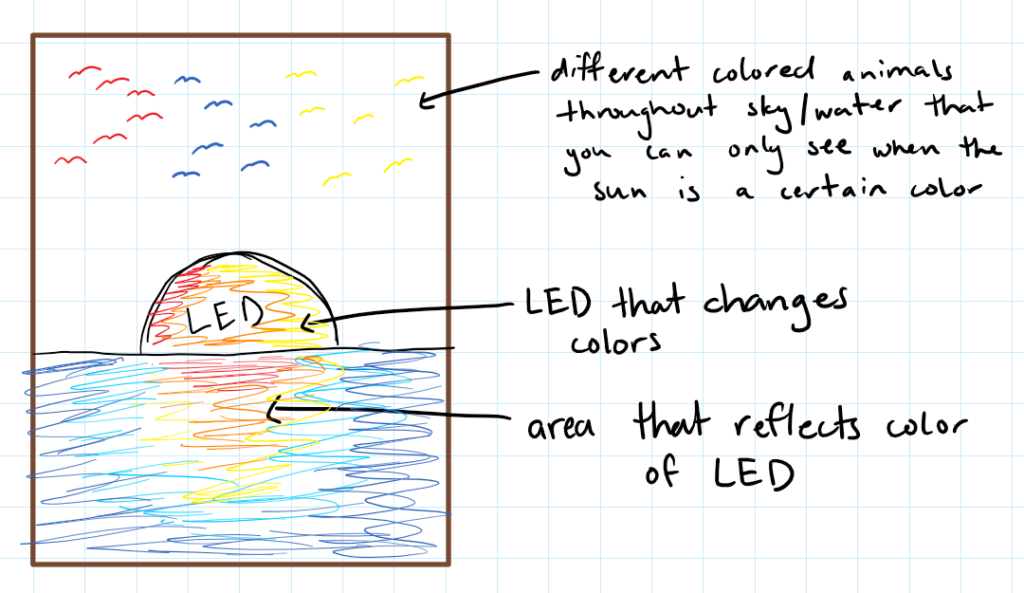 different colored animals
throughout sky/water that
you can only see when the
sun is a certain color
LED
LED that changes
colors
area that reflects color
of LED